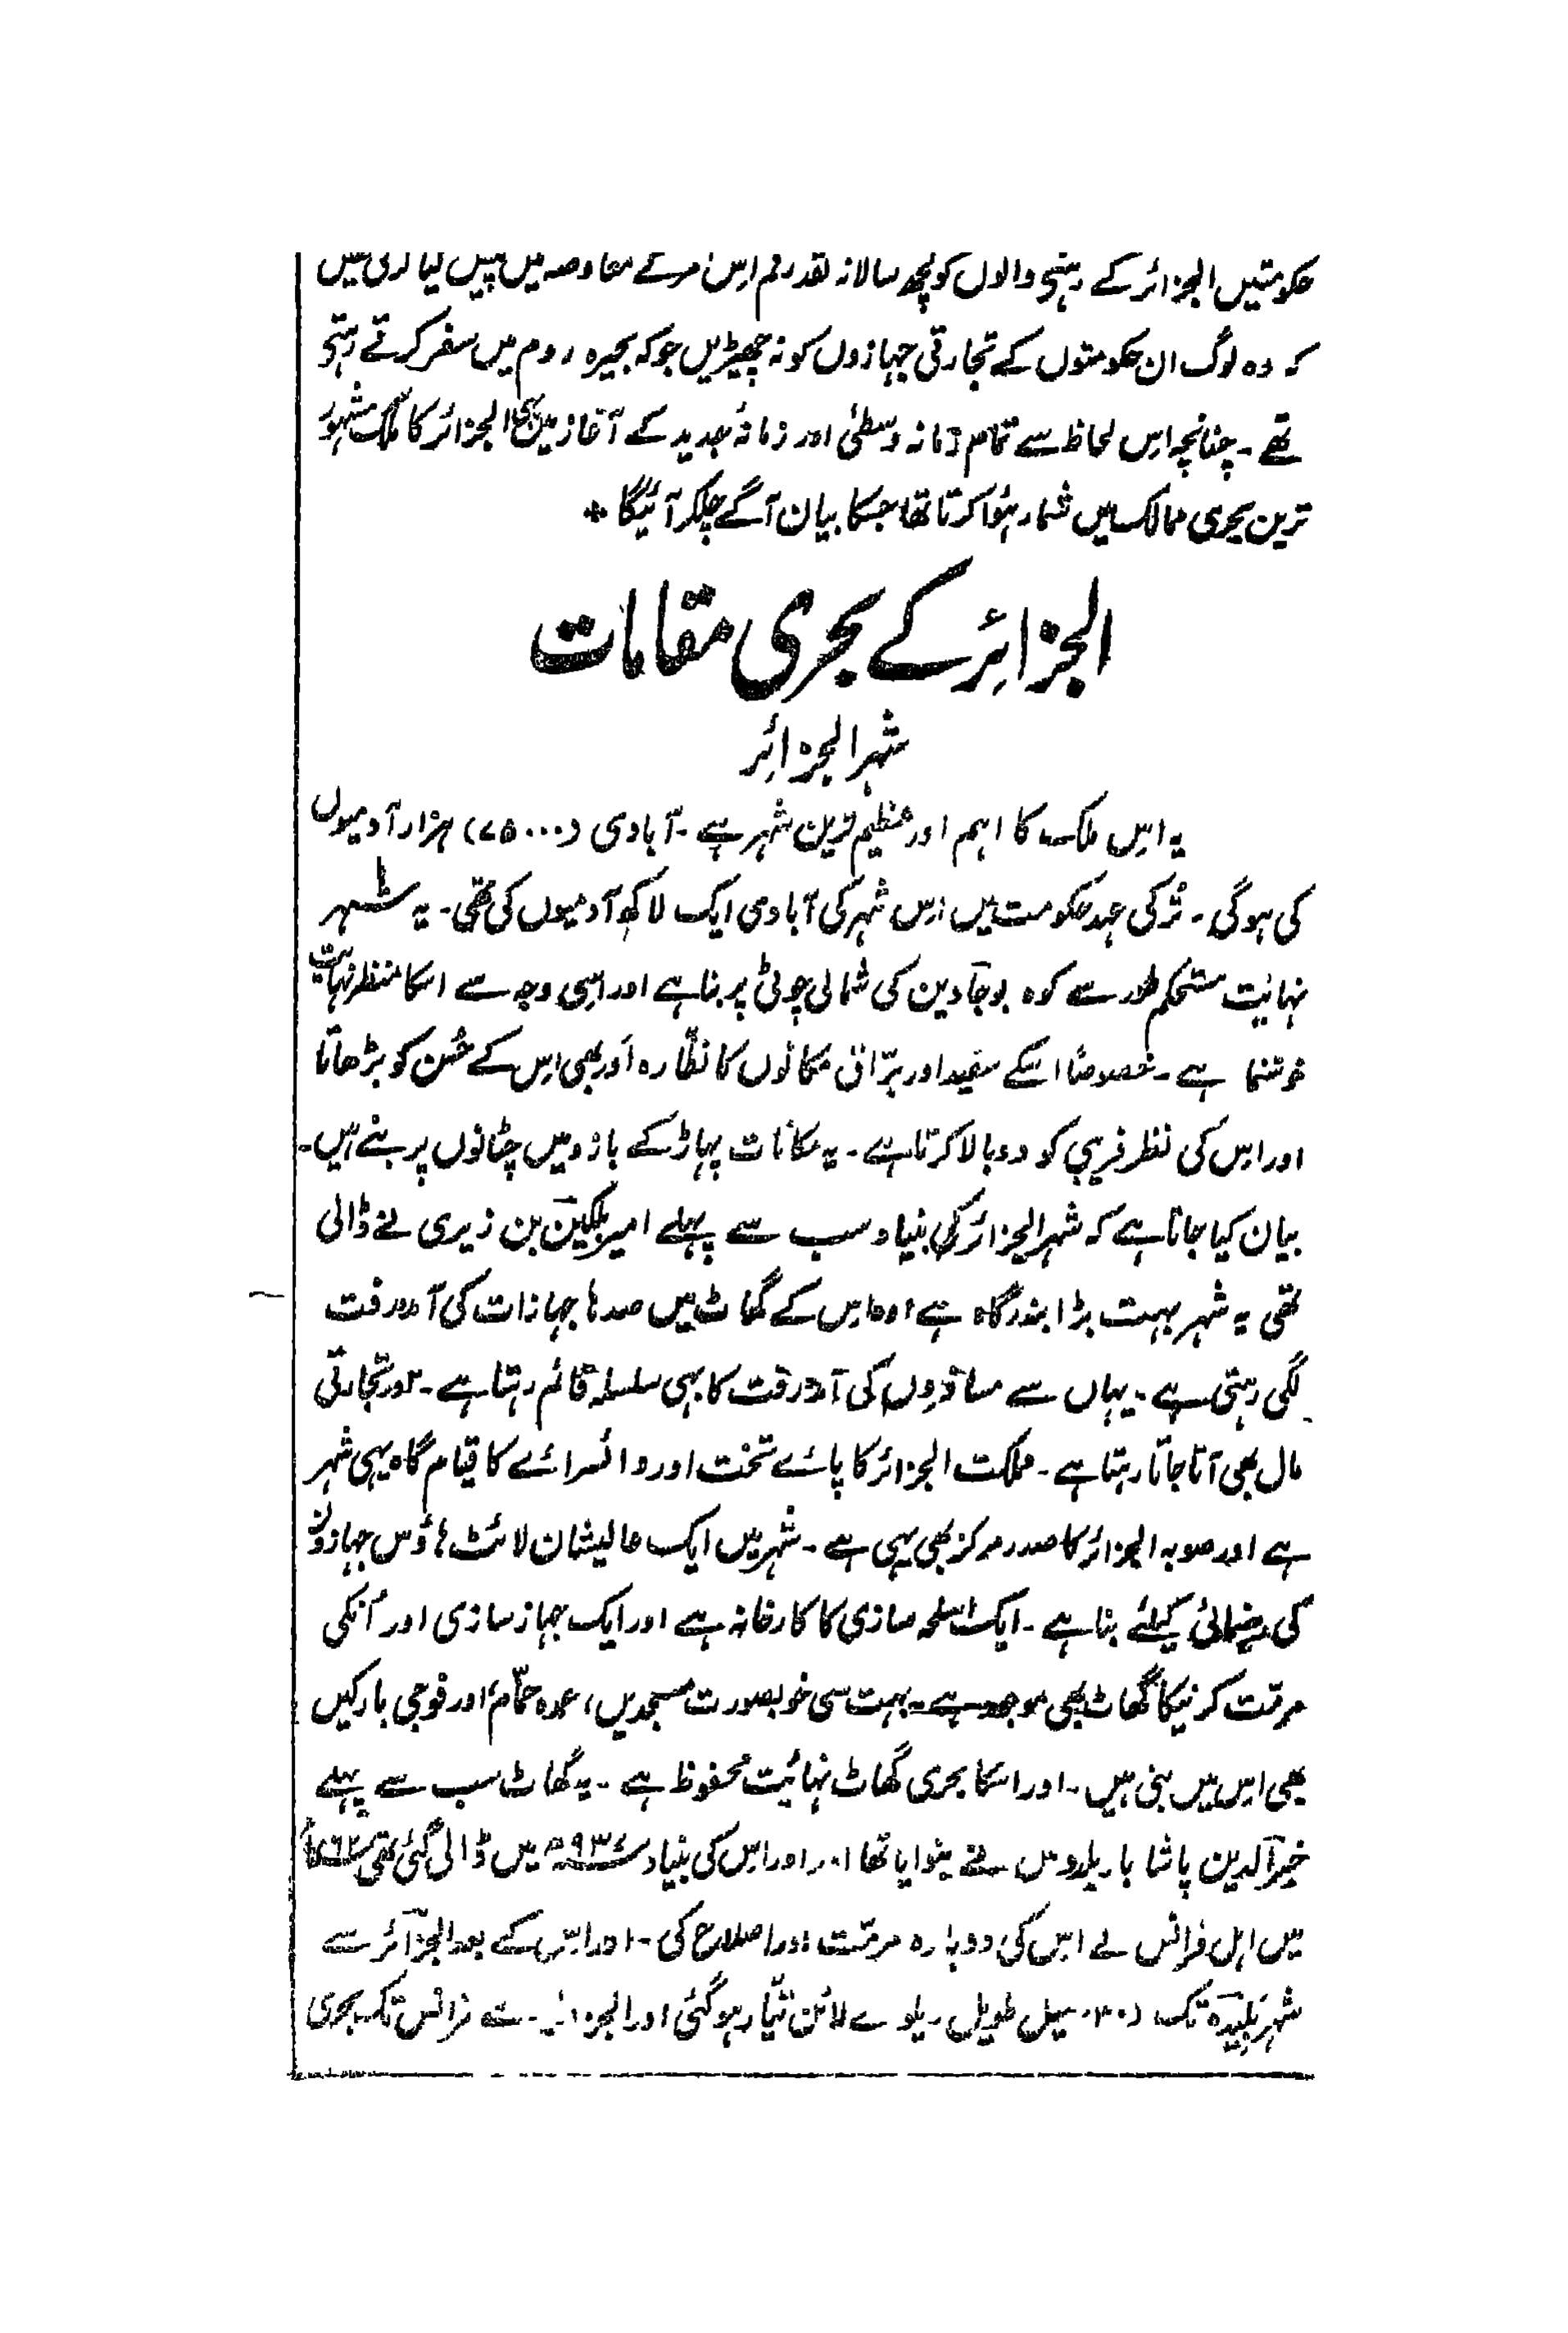 حکومتیں الجزائر کے رہنے والوں کو کچھ سالانہ نقد رقم اس امر کے معاوضہ میں پیش کیا کرتی تھیں
کہ وہ لوگ ان حکومتوں کے تجارتی جہازوں کو نہ چھیڑیں جو کہ بحیرہ روم میں سفر کرتے رہتے
تھے ۔ چنانچہ اس لحاظ سے تمام زمانہ وسطیٰ اور زمانۂ جدید کے آغاز میں بھی الجزائر کا ملک مشہور
ترین بحری ممالک میں شمار ہؤا کرتا تھا جسکا بیان آگے چلکر آئیگا *
الجزائر کے بحری مقامات
شہر الجزائر
یہ اس ملک کا اہم اور عظیم ترین شہر ہے ۔ آبادی (۷۵۰۰۰) ہزار آدمیوں
کی ہوگی ۔ تُرکی عہد حکومت میں اس شہر کی آبادی ایک لاکھ آدمیوں کی تھی ۔ یہ شہر
نہائیت مستحکم طور سے کوہ بوجادین کی شمالی چوٹی پر بنا ہے اور اسی وجہ سے اسکا منظر نہایت
خوشنما ہے ۔ خصوصًا اسکے سفید اور برّاق مکانوں کا نظّارہ اَور بھی اس کے حُسن کو بڑھاتا
اور اس کی نظر فریبی کو دوبالا کرتا ہے ۔ یہ مکانات پہاڑ کے بازو میں چٹانوں پر بنے ہیں ۔
بیان کیا جاتا ہے کہ شہر الجزائر کی بنیاد سب سے پہلے امیر بلکین بن زیری نے ڈالی
تھی یہ شہر بہت بڑا بندرگاہ ہے اور اس کے گھاٹ میں صدہا جہازات کی آمدرفت
لگی رہتی ہے ۔ یہاں سے مسافروں کی آمدرفت کا بھی سلسلہ قائم رہتا ہے ۔ اور تجارتی
مال بھی آتا جاتا رہتا ہے ۔ مملکت الجزائر کا پائے تخت اور وائسرائے کا قیام گاہ یہی شہر
ہے اور صوبہ الجزائر کا صدر مرکز بھی یہی ہے ۔ شہر میں ایک عالیشان لائٹ ہاؤس جہازوں
کی رہنمائی کیلئے بنا ہے ۔ ایک اسلحہ سازی کا کارخانہ ہے اور ایک جہاز سازی اور اُنکی
مرمّت کرنیکا گھاٹ بھی موجود ہے ۔ بہت سی خوبصورت مسجدیں، عمدہ حمّام، اور فوجی بارکیں
بھی اس میں بنی ہیں ۔ اور اسکا بحری گھاٹ نہائیت محفوظ ہے ۔ یہ گھاٹ سب سے پہلے
خیر الدین پاشا باربروس نے بنوایا تھا اور اس کی بنیاد ۹۳۶ھ میں ڈالی گئی تھی
میں اہل فرانس نے اس کی دوبارہ مرمّت اور اصلاح کی ۔ اور اس کے بعد الجزائر سے
شہر بلیدہ تک (۳۰) میل طویل ریلوے لائن تیّار ہوگئی اور الجزائر سے فرانس تک بحری